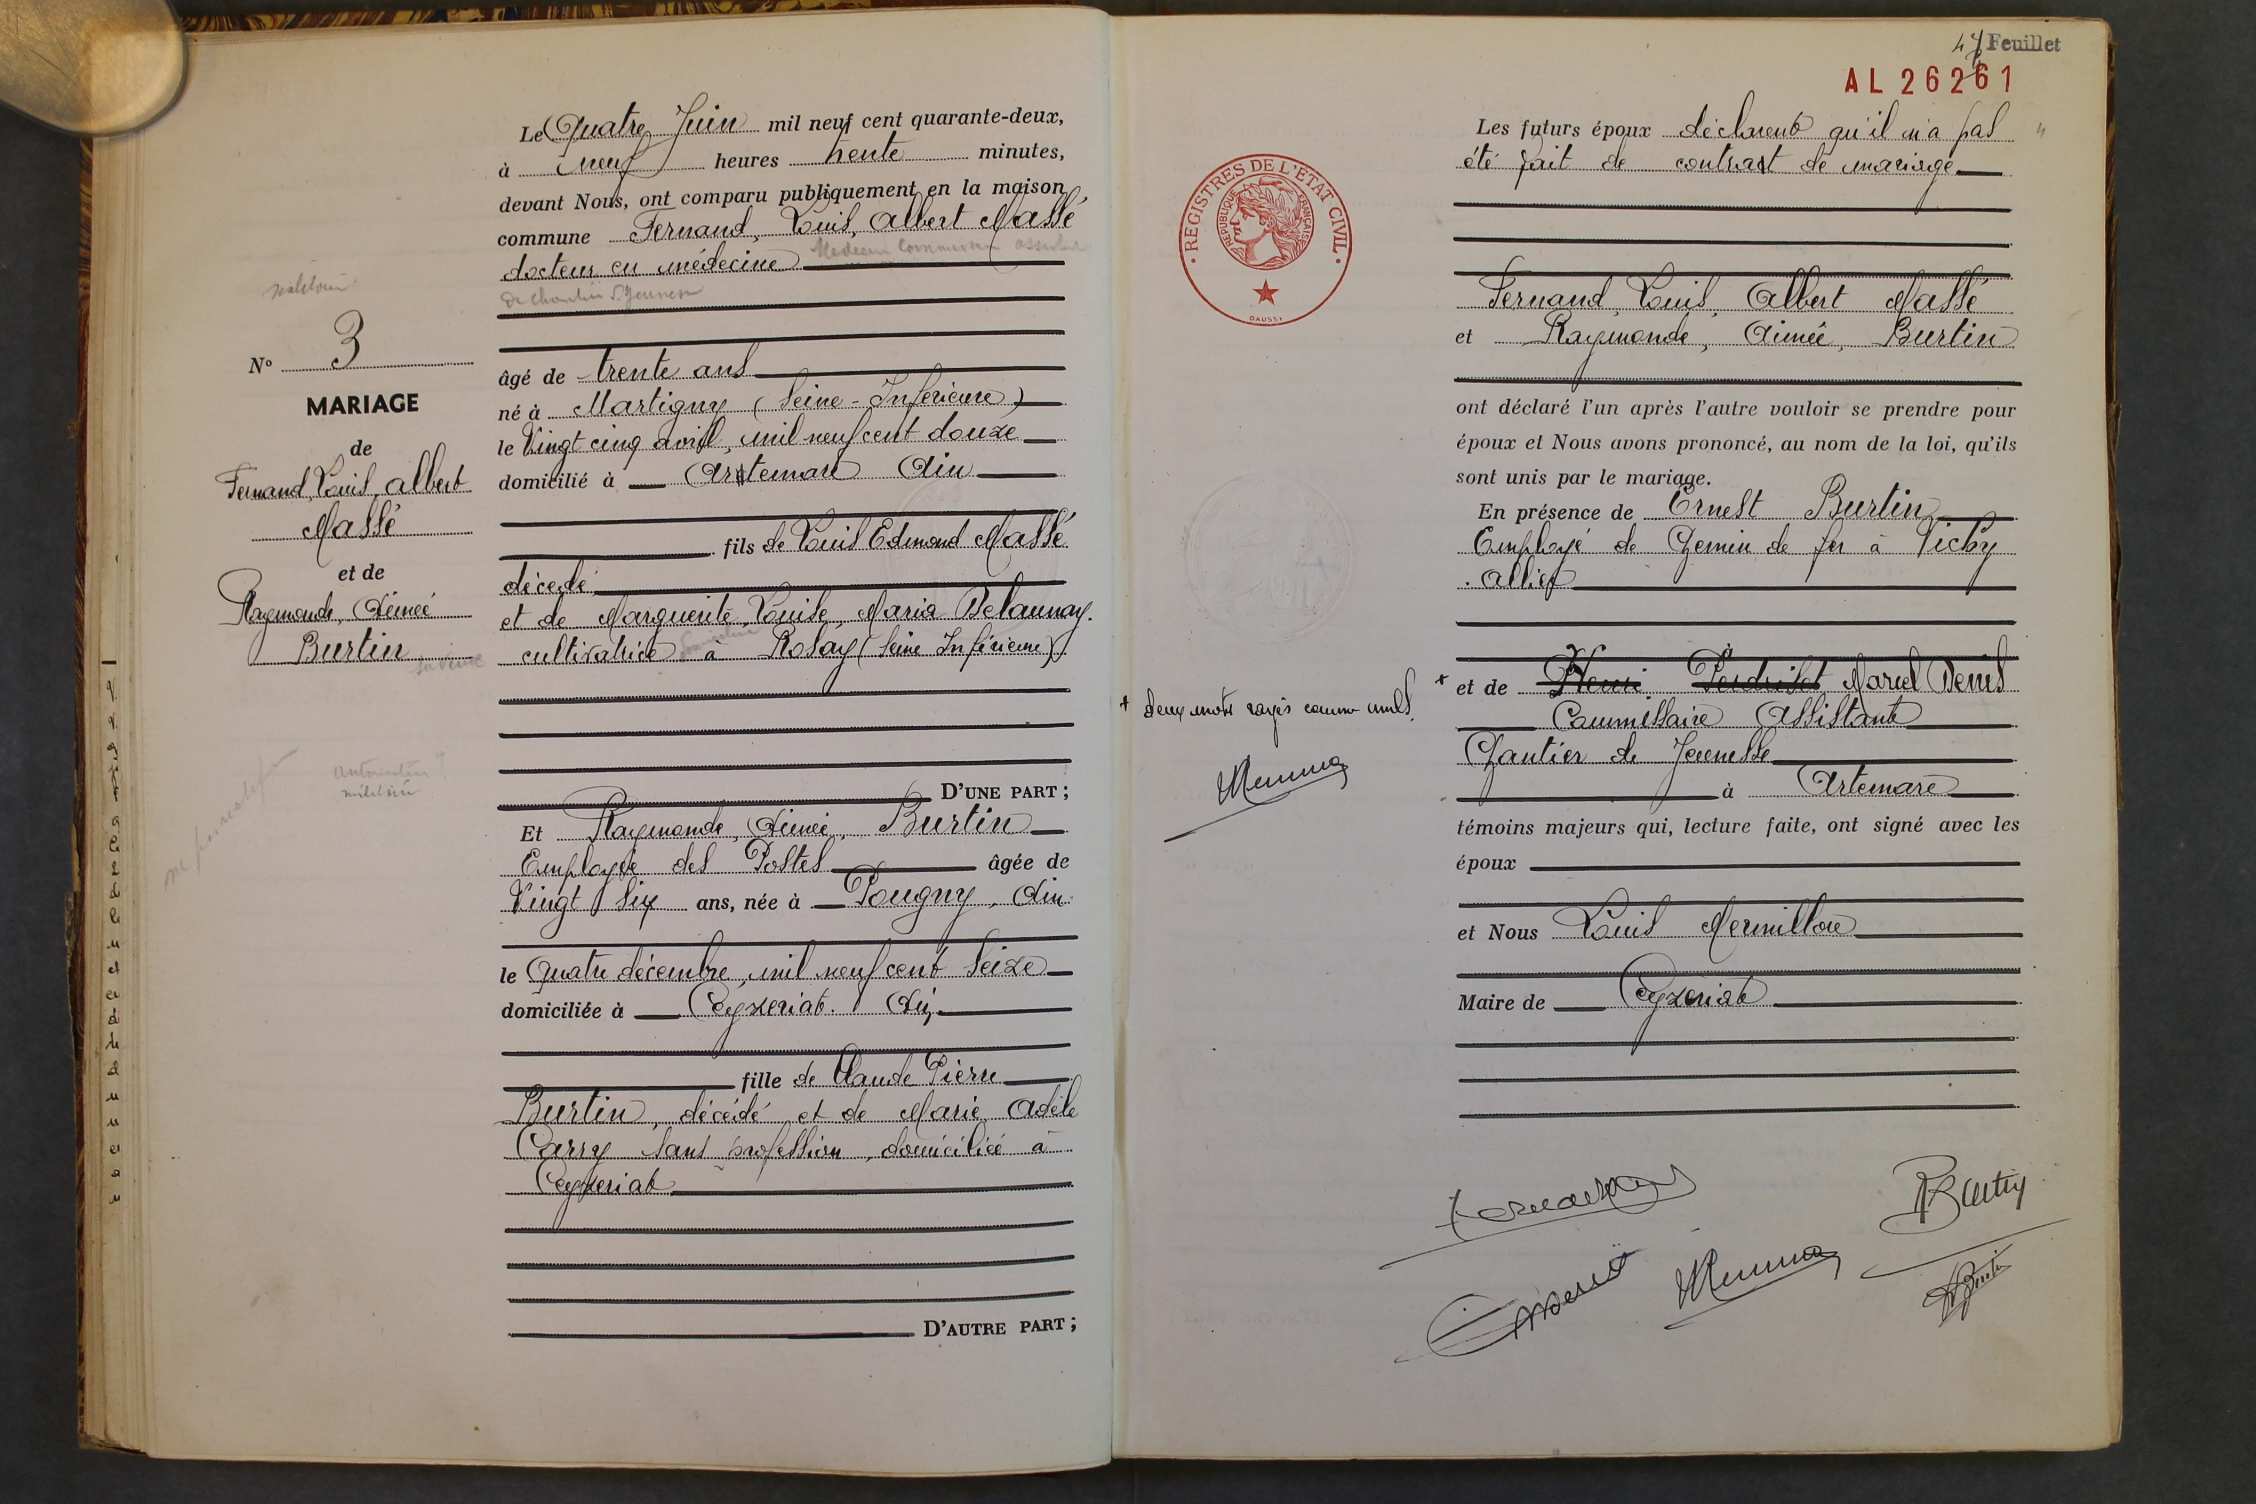 Le Quatre Juin mil neuf cent quarante-deux,
à neuf heures trente minutes,
devant Nous, ont comparu publiquement en la maison
commune Fernand, Louis, Albert Massé
docteur en médecine Médecin Commissaire assistant
de Chantier d. Jeunesse
N° 3
MARIAGE
de
Fernand, Louis, Albert
Massé
et de
Raymonde, Aimée
Burtin
âgé de trente ans
né à Martigny (Seine-Inférieure)
le Vingt cinq avril, mil neuf cent douze
domicilié à Artemare Ain
fils de Louis Edmond Massé
décédé
et de Marguerite, Louise, Maria Delaunay.
cultivatrice à Rosay (Seine Inférieure)
autorisation
militaire
D'UNE PART;
Et Raymonde, Aimée, Burtin
Employée des Postes âgée de
Vingt six ans, née à Pougny, Ain
le Quatre décembre, mil neuf cent seize
domiciliée à Ceyzeriat. Ain
fille de Claude Pierre
Burtin, décédé et de Marie Adèle
Carry sans profession, domiciliée à
Ceyzeriat
D'AUTRE PART;
47 Feuillet
AL 26261
REGISTRES DE L'ÉTAT CIVIL
RÉPUBLIQUE FRANÇAISE
DAUSSY
Les futurs époux déclarent qu'il n'a pas
été fait de contrat de mariage
Fernand, Louis, Albert Massé
et Raymonde, Aimée, Burtin
ont déclaré l'un après l'autre vouloir se prendre pour
époux et Nous avons prononcé, au nom de la loi, qu'ils
sont unis par le mariage.
En présence de Ernest Burtin
Employé de Chemin de fer à Vichy
Allier
+ et de Henri Perdriset Marcel Denis
+ deux mots rayés comme nuls.
Commissaire Assistant
Chantier de Jeunesse
à Artemare
témoins majeurs qui, lecture faite, ont signé avec les
époux
et Nous Louis Mermillon
Maire de Ceyzeriat
RBurtin